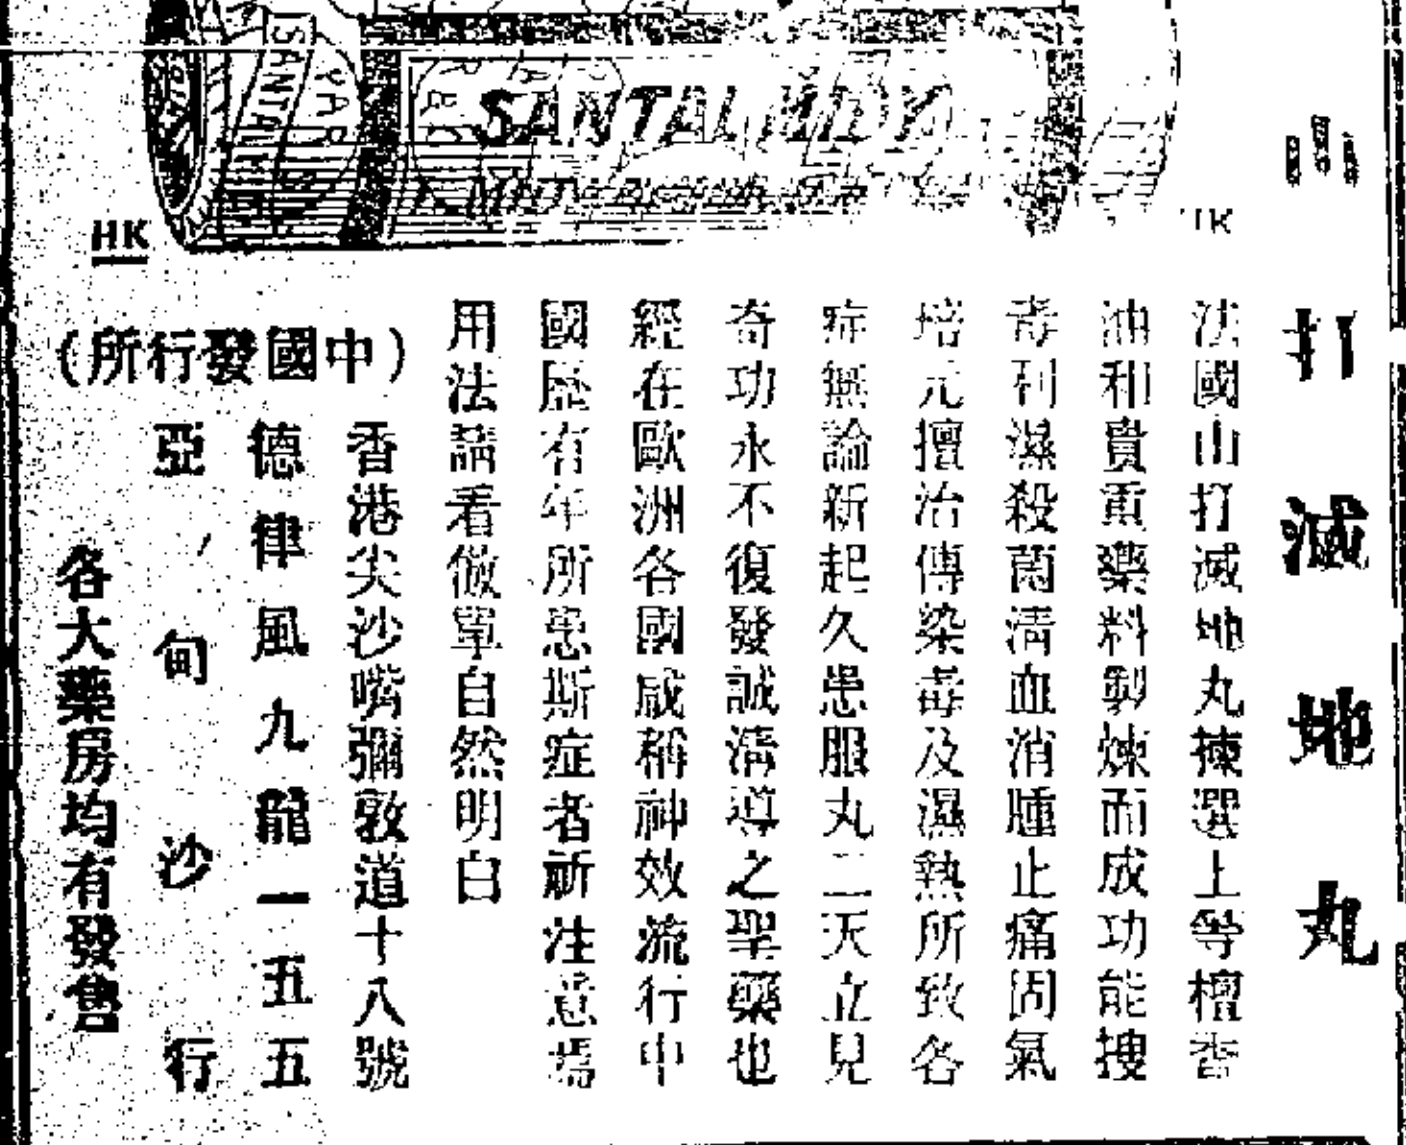 SANTAL MIDY
SANTAL
PARIS
HK
山打滅地丸
法國山打滅地丸揀選上等檀香
油和貴重藥料製煉而成功能搜
毒利濕殺菌清血消腫止痛固氣
培元擅治傳染毒及濕熱所致各
症無論新起久患服丸二天立見
奇功永不復發誠淸導之聖藥也
經在歐洲各國咸稱神效流行中
國歷有年所患斯症者祈注意焉
用法請看倣單自然明白
（中國發行所）
香港尖沙嘴彌敦道十八號
德律風九龍一五五
亞甸沙行
各大藥房均有發售